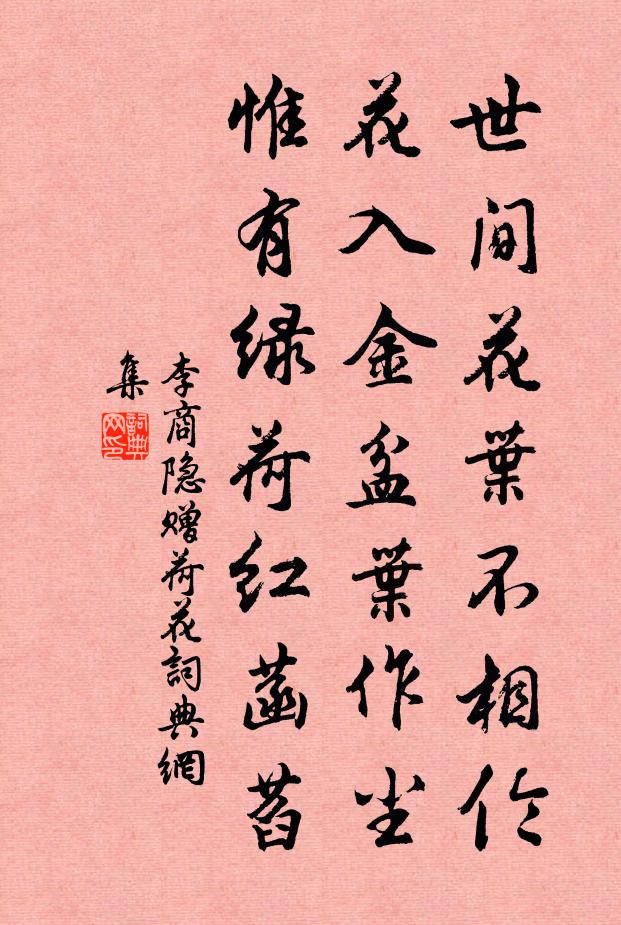 世间花葉不相伦
花入金盆葉作尘
惟有绿荷红菡萏
李商隐赠荷花詞典網
集
詞典
网印